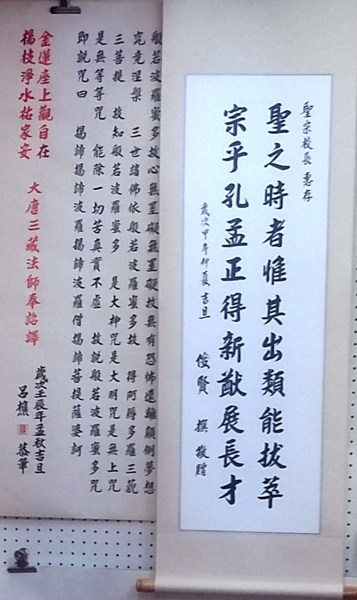 聖宗校長 惠存
聖之時者惟其出類能拔萃
宗乎孔孟正得新猷展長才
歲次甲午仲夏吉旦
俊賢 撰 敬贈
般若波羅蜜多故心無罣礙無罣礙故無有恐怖遠離顛倒夢想
究竟涅槃 三世諸佛依般若波羅蜜多故 得阿耨多羅三藐
三菩提 故知般若波羅蜜多 是大神咒是大明咒是無上咒
是無等等咒 能除一切苦真實不虛 故說般若波羅蜜多咒
即說咒曰 揭諦揭諦波羅揭諦波羅僧揭諦菩提薩婆訶
大唐三藏法師奉詔譯
金蓮座上觀自在
楊枝淨水祐家安
歲次壬辰年孟秋吉旦
呂樵 恭筆